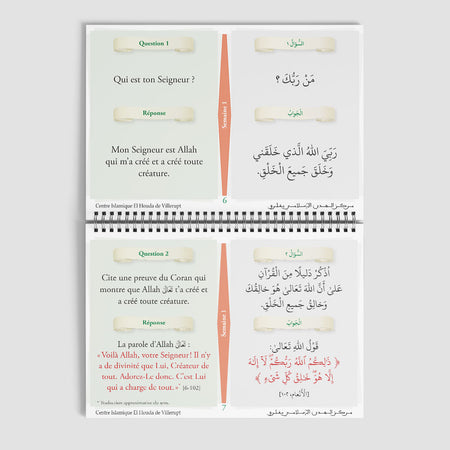 Question 1
Qui est ton Seigneur ?
Réponse
Mon Seigneur est Allah
qui m'a créé et a créé toute
créature.
Semaine 1
السُّؤَالُ ١
مَنْ رَبُّكَ ؟
الجَوَابُ
رَبِّيَ اللهُ الَّذِي خَلَقَنِي
وَخَلَقَ جَمِيعَ الْخَلْقِ.
Centre Islamique El Houda de Villerupt
6
Question 2
Cite une preuve du Coran qui
montre que Allah تَعَالَى t'a créé et
a créé toute créature.
Réponse
La parole d'Allah تَعَالَى :
« Voilà Allah, votre Seigneur ! Il n'y
a de divinité que Lui, Créateur de
tout. Adorez-Le donc. C'est Lui
qui a charge de tout. »* [6-102]
* Traduction approximative du sens.
Semaine 1
السُّؤَالُ ٢
اُذْكُرْ دَلِيلًا مِنَ الْقُرْآنِ
عَلَىٰ أَنَّ اللهَ تَعَالَىٰ هُوَ خَالِقُكَ
وَخَالِقُ جَمِيعِ الْخَلْقِ.
الجَوَابُ
قَوْلُ اللهِ تَعَالَىٰ:
﴿ ذَٰلِكُمُ ٱللَّهُ رَبُّكُمْ ۖ لَآ إِلَٰهَ
إِلَّا هُوَ ۖ خَٰلِقُ كُلِّ شَىْءٍ ﴾
[الأَنْعَام: ١٠٢]
Centre Islamique El Houda de Villerupt
7